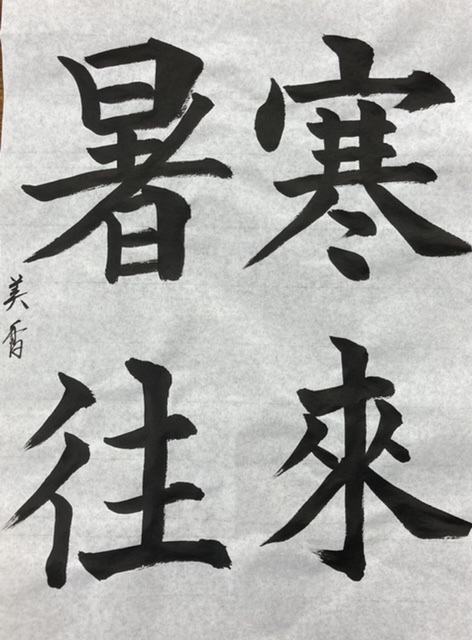 寒來
暑往
美香